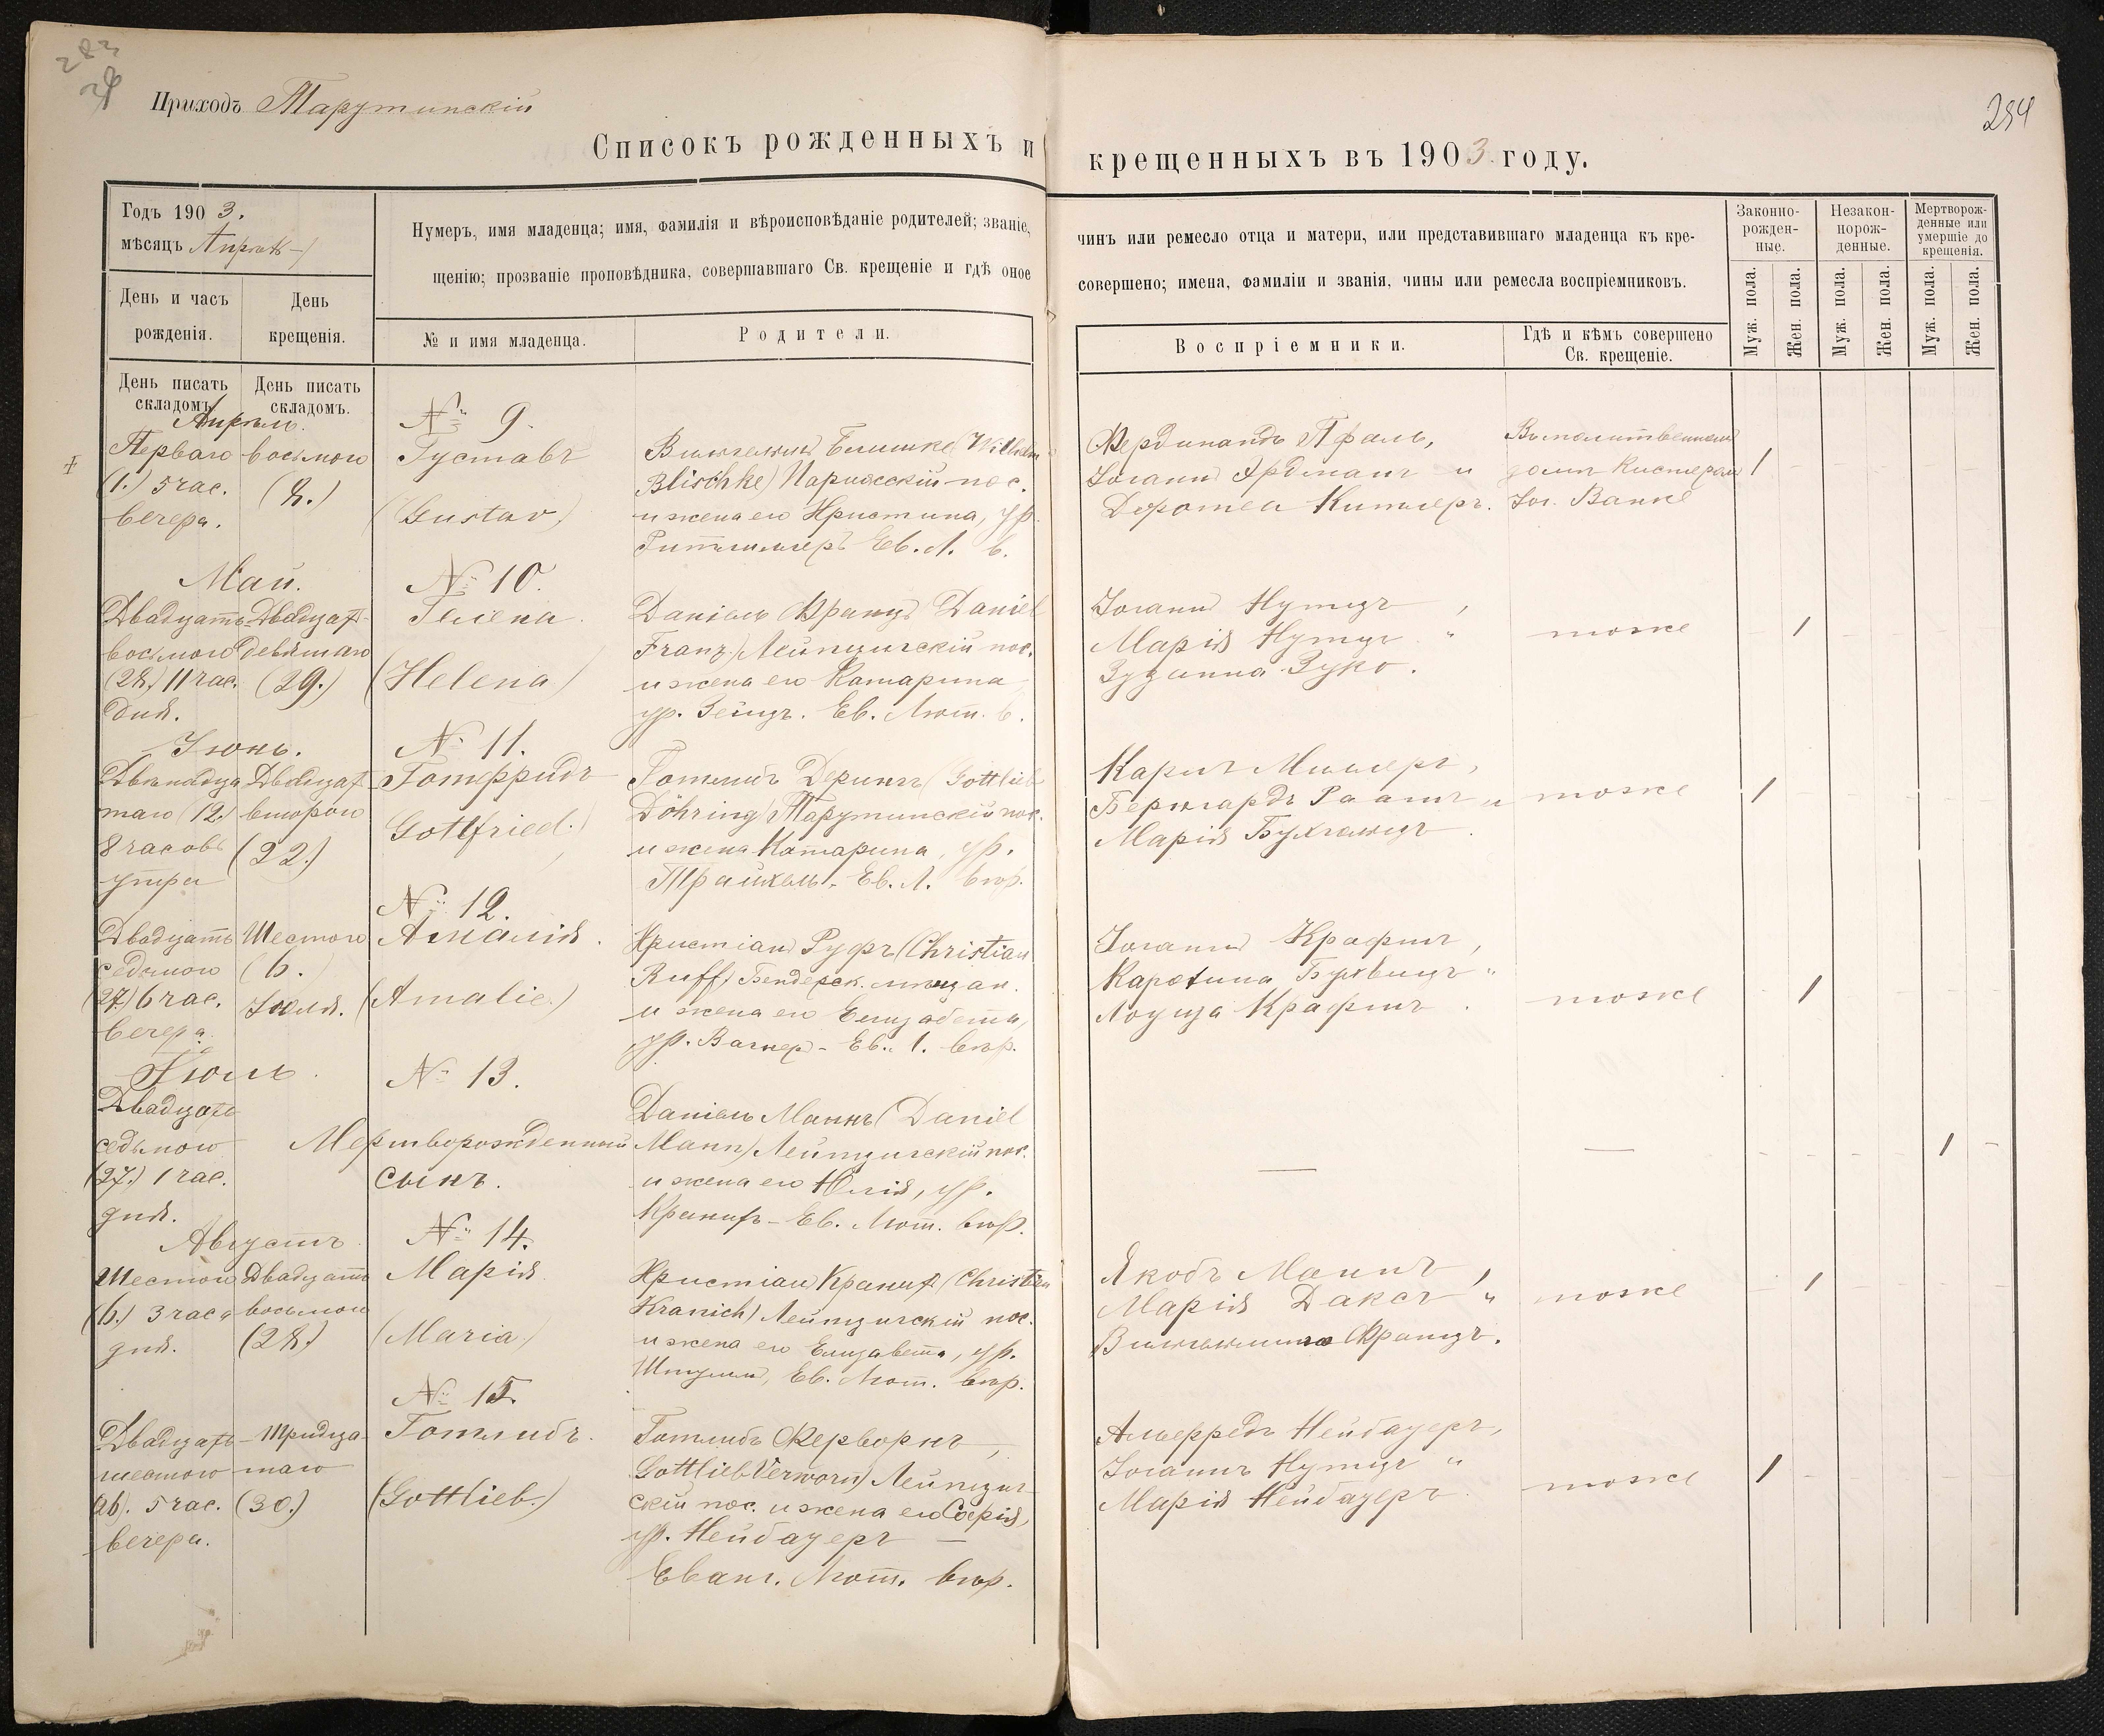 283
284
Приходъ Тарутинскій
Списокъ рожденныхъ и крещенныхъ въ 1903 году.
Годъ 1903.
мѣсяцъ Апрѣль
Нумеръ, имя младенца; имя, фамилія и вѣроисповѣданіе родителей; званіе, чинъ или ремесло отца и матери, или представившаго младенца къ кре-
щенію; прозваніе проповѣдника, совершавшаго Св. крещеніе и гдѣ оное совершено; имена, фамиліи и званія, чины или ремесла воспріемниковъ.
День и часъ рожденія.
День крещенія.
№ и имя младенца.
Родители.
Воспріемники.
Гдѣ и кѣмъ совершено
Св. крещеніе.
Законно-
рожден-
ные.
Незакон-
норож-
денные.
Мертворож-
денные или
умершіе до
крещенія.
Муж. пола.
Жен. пола.
Муж. пола.
Жен. пола.
Муж. пола.
Жен. пола.
День писать
складомъ.
День писать
складомъ.
Апрѣль.
Перваго
(1.) 5 час.
вечера.
восьмого
(8.)
№ 9.
Густавъ
(Gustav)
Вильгельмъ Блишке (Wilhelm
Blischke) Парижскій пос.
и жена его Христина, ур.
Ев. Л. в.
Фердинандъ Пфаль,
Іоганнъ Эрдманъ и
Доротея Китлеръ.
Въ молитвенномъ
домѣ Кистеромъ
Іог. Ванке
1
Май.
Двадцать
восьмого
(28.) 11 час.
дня.
Двадцать
девятаго
(29.)
№ 10.
Гелена.
(Helena)
Даніэль Францъ Daniel
Franz) Лейпцигскій пос.
и жена его Катарина
ур. Зейцъ. Ев. Лют. в.
Іоганнъ Нутцъ,
Марія Нутцъ "
Зузанна Зуко.
тоже
1
Іюнь.
Двѣнадца
таго (12.)
8 часовъ
утра
Двадцать
второго
(22.)
№ 11.
Готфридъ
Gottfried.)
Готлибъ Дерингъ (Gottlieb
Döhring) Тарутинскій пос.
и жена Катарина, ур.
Трайхель. Ев. Л. вѣр.
Карлъ Миллеръ,
Бернгардъ Раашъ и
Марія Бухгольцъ.
тоже
1
Двадцать
седьмого
(27.) 6 час.
вечера.
Шестого
(6.)
Іюля.
№ 12.
Амалія.
(Amalie.)
Христіанъ Руфъ (Christian
Ruff) Бендерск. мѣщан.
и жена его Елизабета,
ур. Вагнер - Ев. Л. вѣр.
Іоганнъ Крафтъ,
Каролина Бухвицъ "
Лоуиза Крафтъ.
тоже
1
Іюль.
Двадцать
седьмого
(27.) 1 час.
дня.
№ 13.
Мертворожденный
сынъ.
Даніэль Маннъ (Daniel
Mann) Лейпцигскій пос.
и жена его Юлія, ур.
Кранихъ - Ев. Лют. вѣр.
—
—
1
Августъ
Шестого
(6.) 3 часа
дня.
Двадцать
восьмого
(28.)
№ 14.
Марія
(Maria.)
Христіанъ Кранихъ (Christian
Kranich) Лейпцигскій пос.
и жена его Елизавета, ур.
Ев. Лют. вѣр.
Якобъ Маннъ,
Марія Даксъ "
Вильгельмина Францъ.
тоже
1
Двадцать
шестого
26). 5 час.
вечера.
Тридца-
таго
(30.)
№ 15.
Готлибъ.
(Gottlieb.)
Готлибъ Ферворнъ,
Gottlieb Verworn) Лейпциг-
скій пос. и жена его Софія,
ур. Нейбауеръ —
Еванг. Лют. вѣр.
Альфредъ Нейбауеръ,
Іоганнъ Нутцъ "
Марія Нейбауеръ.
тоже
1